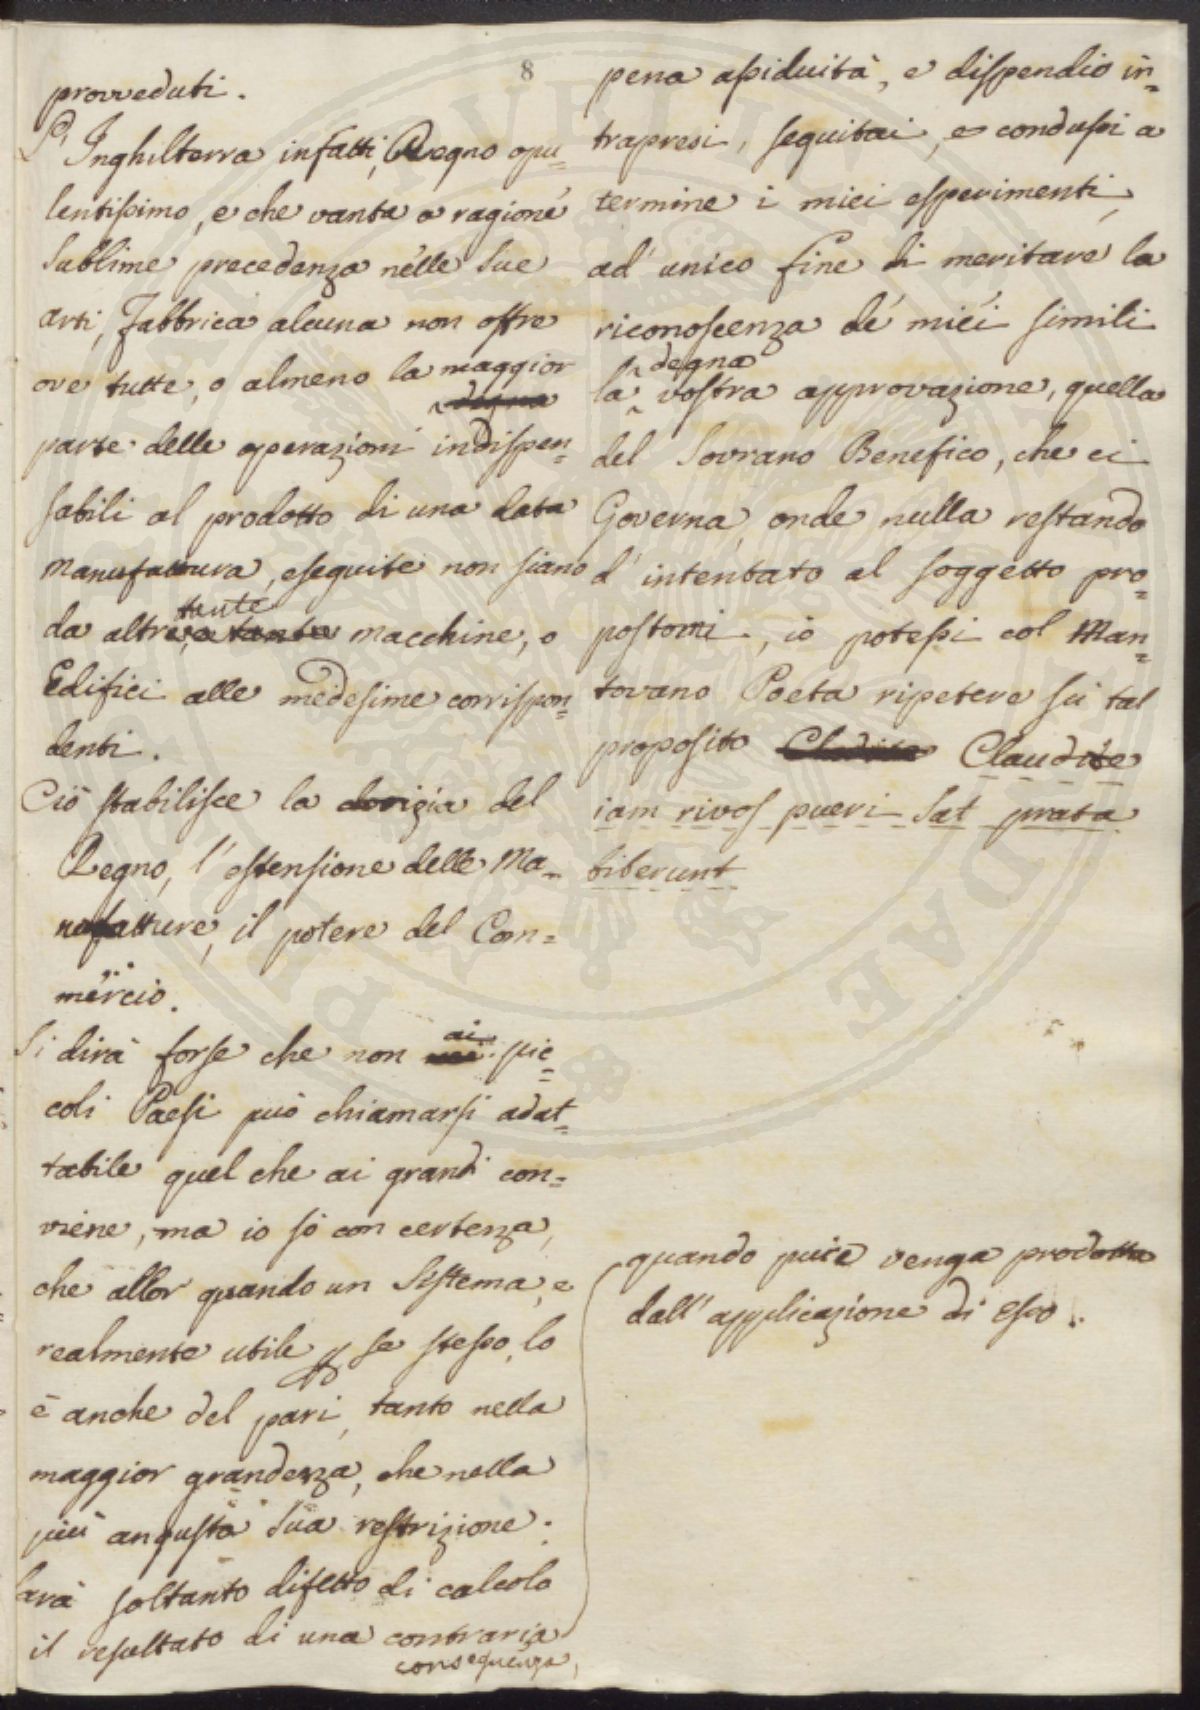 8
provveduti.
L'Inghilterra infatti, Regno opu=
lentissimo, e che vanta a ragione
sublime precedenza nelle sue
arti, Fabbrica alcuna non offre
ove tutte, o almeno la maggior
parte delle operazioni indispen=
sabili al prodotto di una data
manufattura, eseguite non siano
da altre tante macchine, o
Edifici alle medesime corrispon=
denti.
Ciò stabilisce la dovizia del
Regno, l'estensione delle Ma=
nufatture, il potere del Com=
mercio.
Si dirà forse che non ai pic=
coli Paesi può chiamarsi adat=
tabile quel che ai grandi con=
viene, ma io sò con certezza,
che allor quando un Sistema, e
realmente utile se stesso, lo
è anche del pari, tanto nella
maggior grandezza, che nella
più angusta sua restrizione.
Sarà soltanto difetto di calcolo
il resultato di una contraria
consequenza,
pena assiduità, e dispendio in=
trapresi, seguitai, e condussi a
termine i miei esperimenti,
ad' unico fine di meritare la
riconoscenza de' miei simili
degna
la vostra approvazione, quella
del Sovrano Benefico, che ci
Governa, onde nulla restando
d'intentato al soggetto pro=
postomi, io potessi col Man=
tovano Poeta ripetere su tal
proposito Claudite
iam rivos pueri sat prata
biberunt
quando pure venga prodotta
dall'applicazione di Esso.